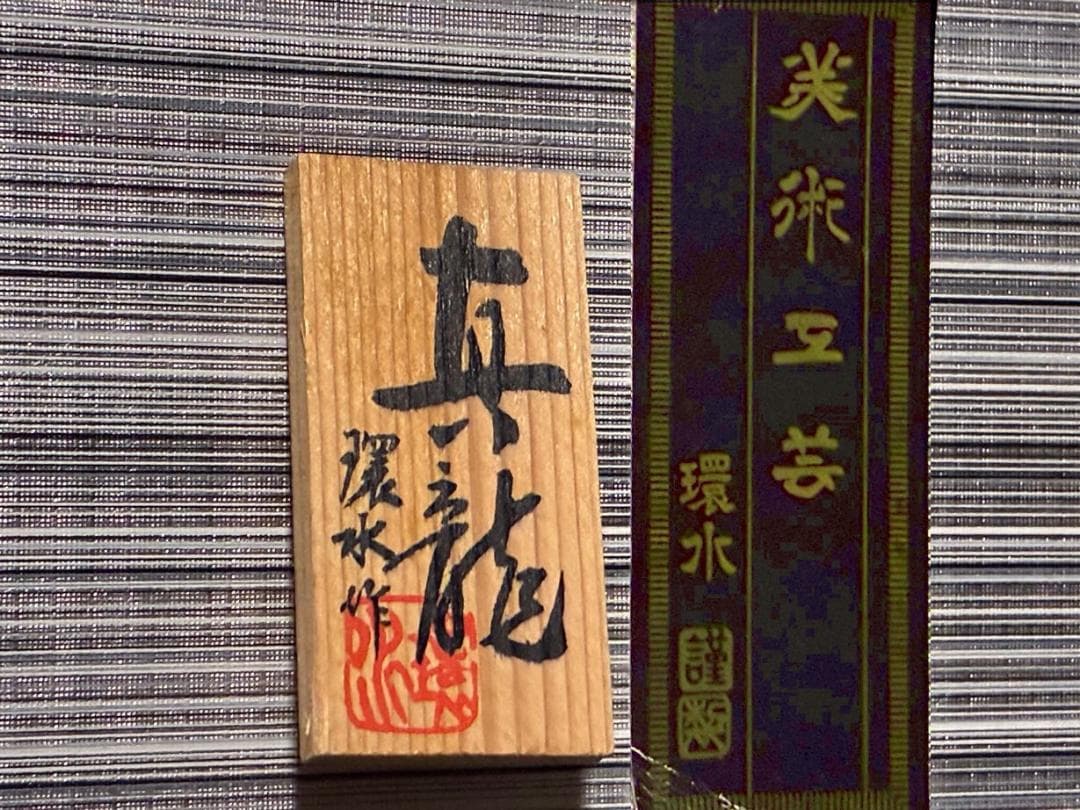 真龍
環水作
美術工芸
環水
謹製